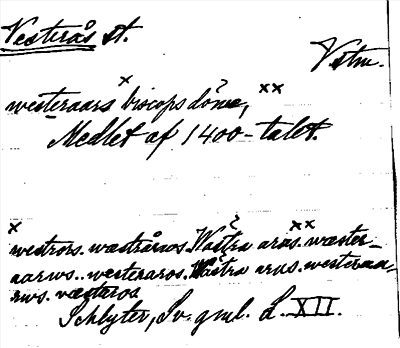 Vesterås st.
Vstm.
westeraars biscops döme,
Medlet af 1400-talet.
westrors. wæstrāros. Wästra aras. wæster-
aarws. westeraros. Wästra arus. westeraa-
rws. væsteros
Schlyter, Sv. gml. L. XII.